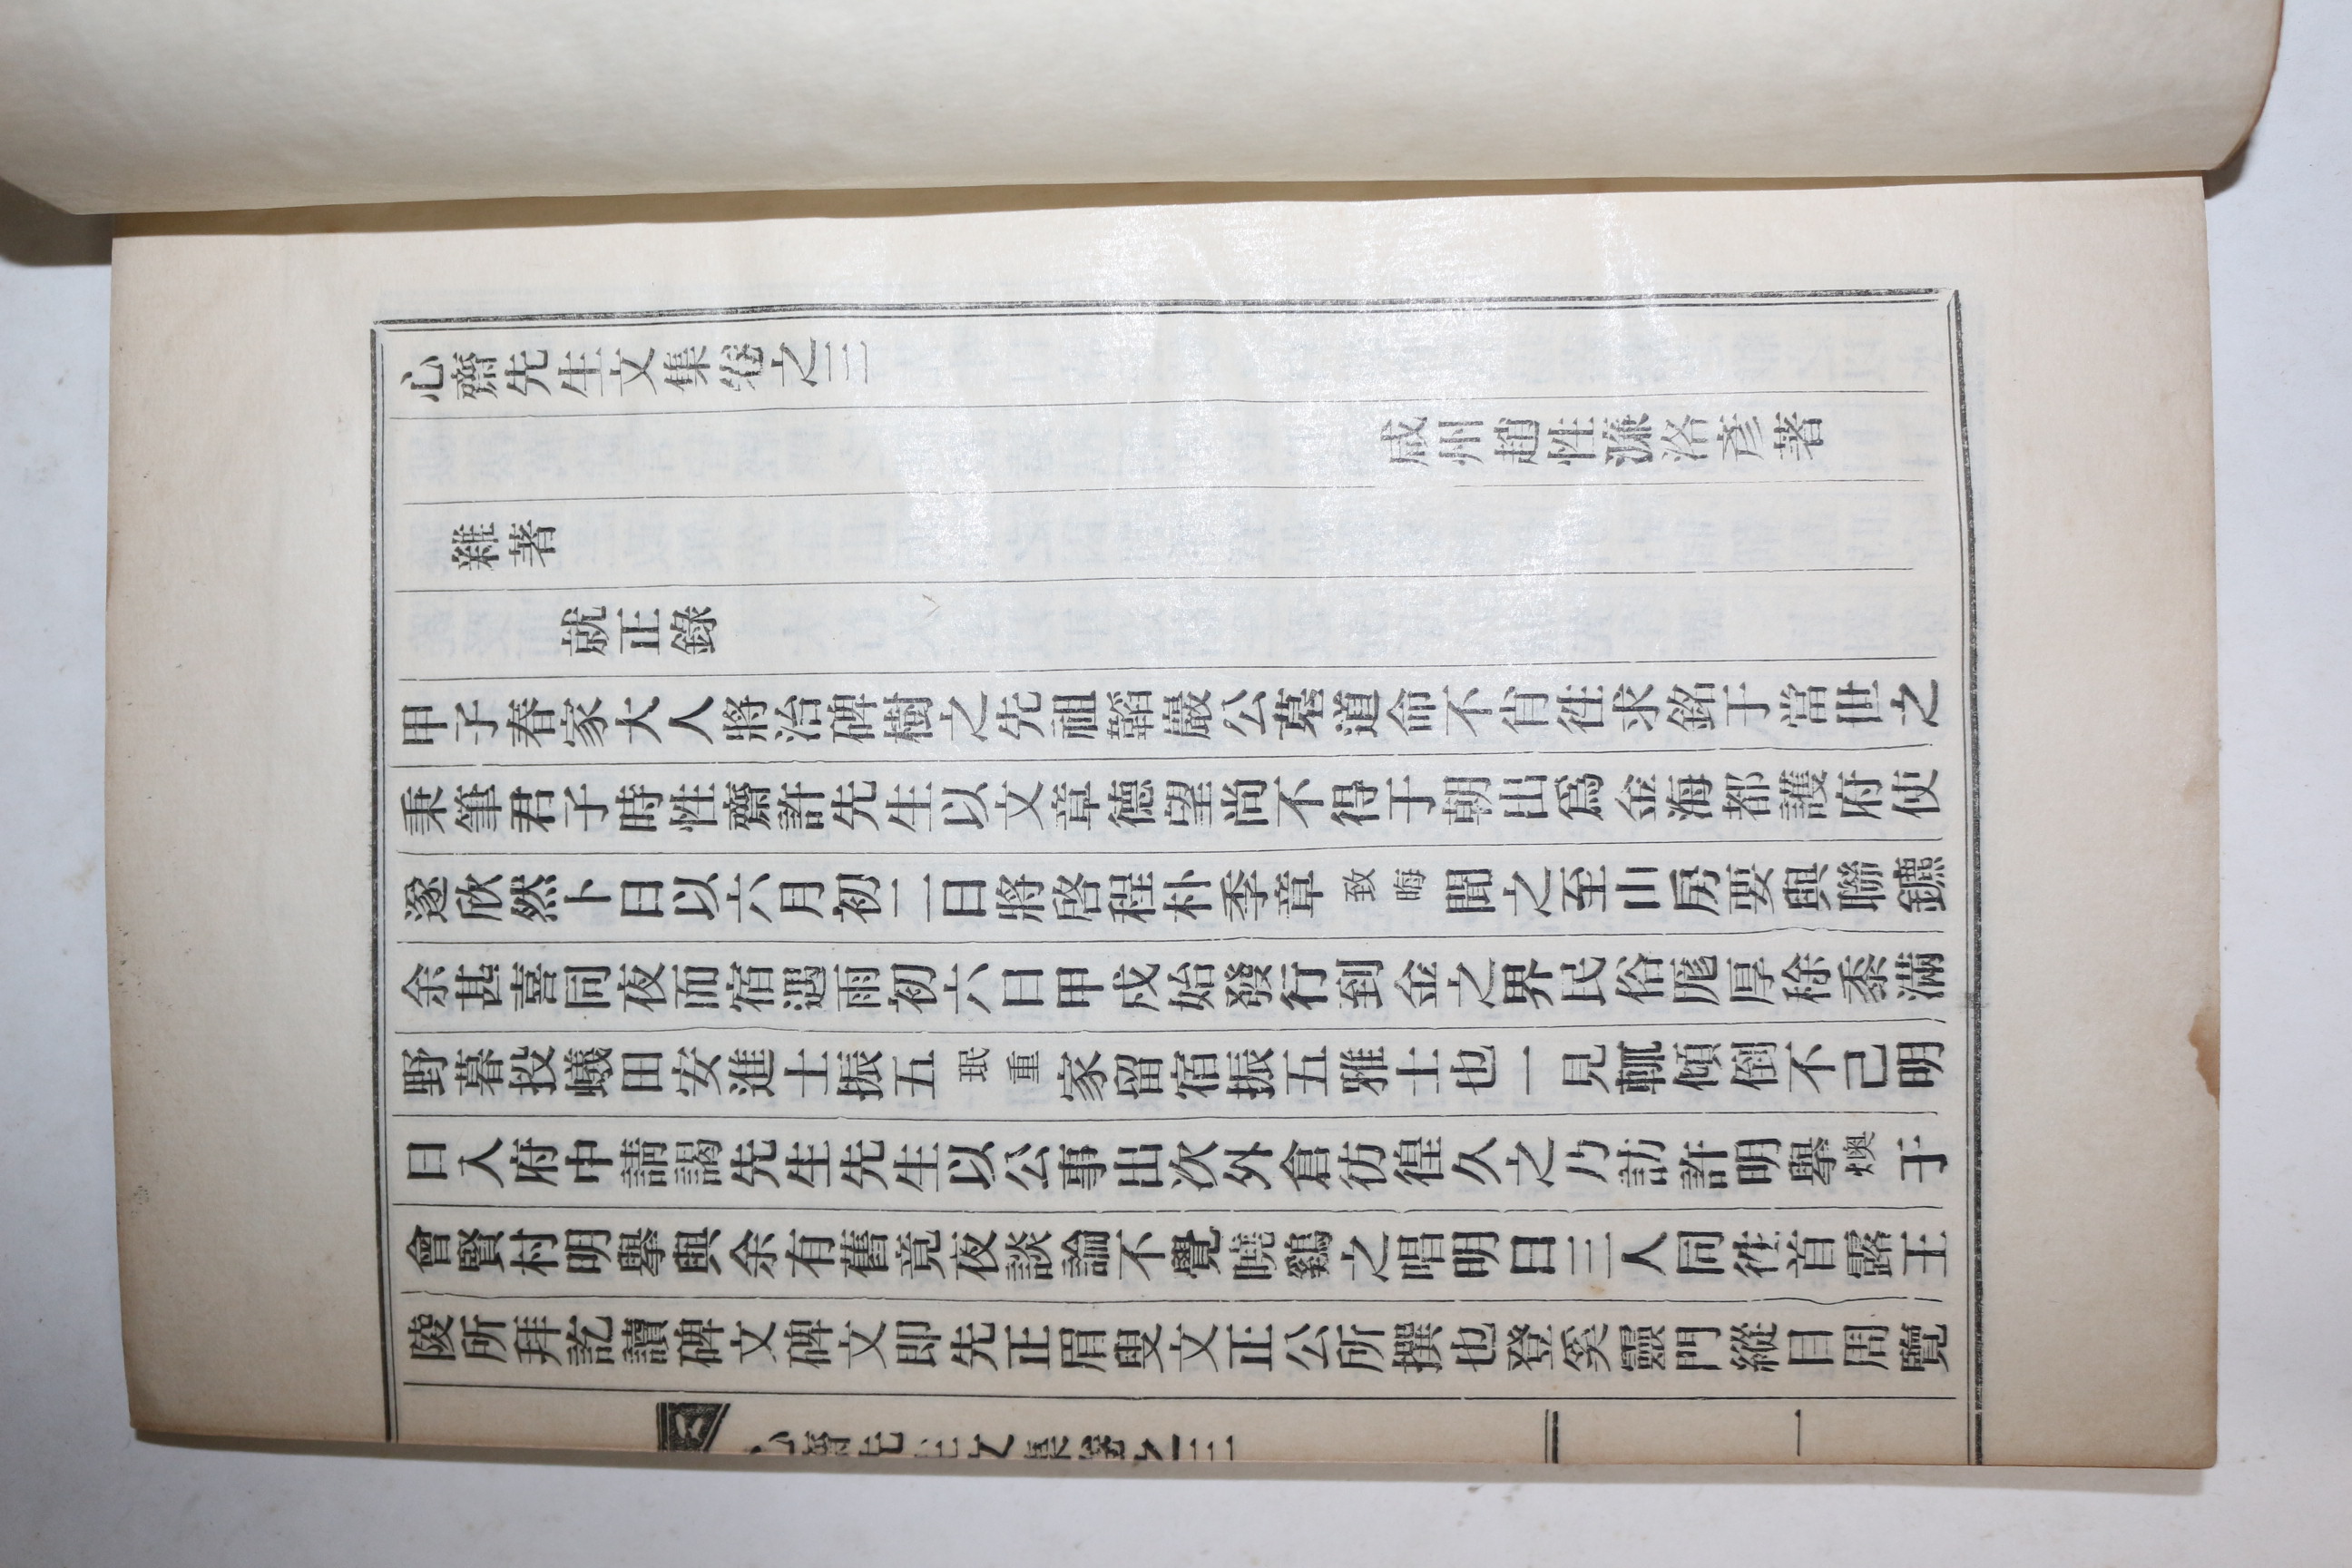 心齋先生文集卷之三
咸州趙性濂洛彦著
雜著
就正錄
甲子春家大人將治碑樹之先祖韜巖公墓道命不肖徃求銘于當世之
秉筆君子時性齋許先生以文章德望尚不得于朝出爲金海都護府使
遂欣然卜日以六月初二日將啓程朴季章致晦聞之至山房要與聯鑣
余甚喜同夜而宿遇雨初六日甲戍始發行到金之界民俗厖厚稌黍滿
野暮投蟻田安進士振五珉重家留宿振五雅士也一見輒傾倒不已明
日入府中請謁先生先生以公事出次外倉彷徨久之乃訪許明擧燠于
會賢村明擧與余有舊竟夜談論不覺曉鷄之唱明日三人同徃首露王
陵所拜訖讀碑文碑文即先正眉叟文正公所撰也登奚靈門縱目周覽
心齋先生文集卷之三
一